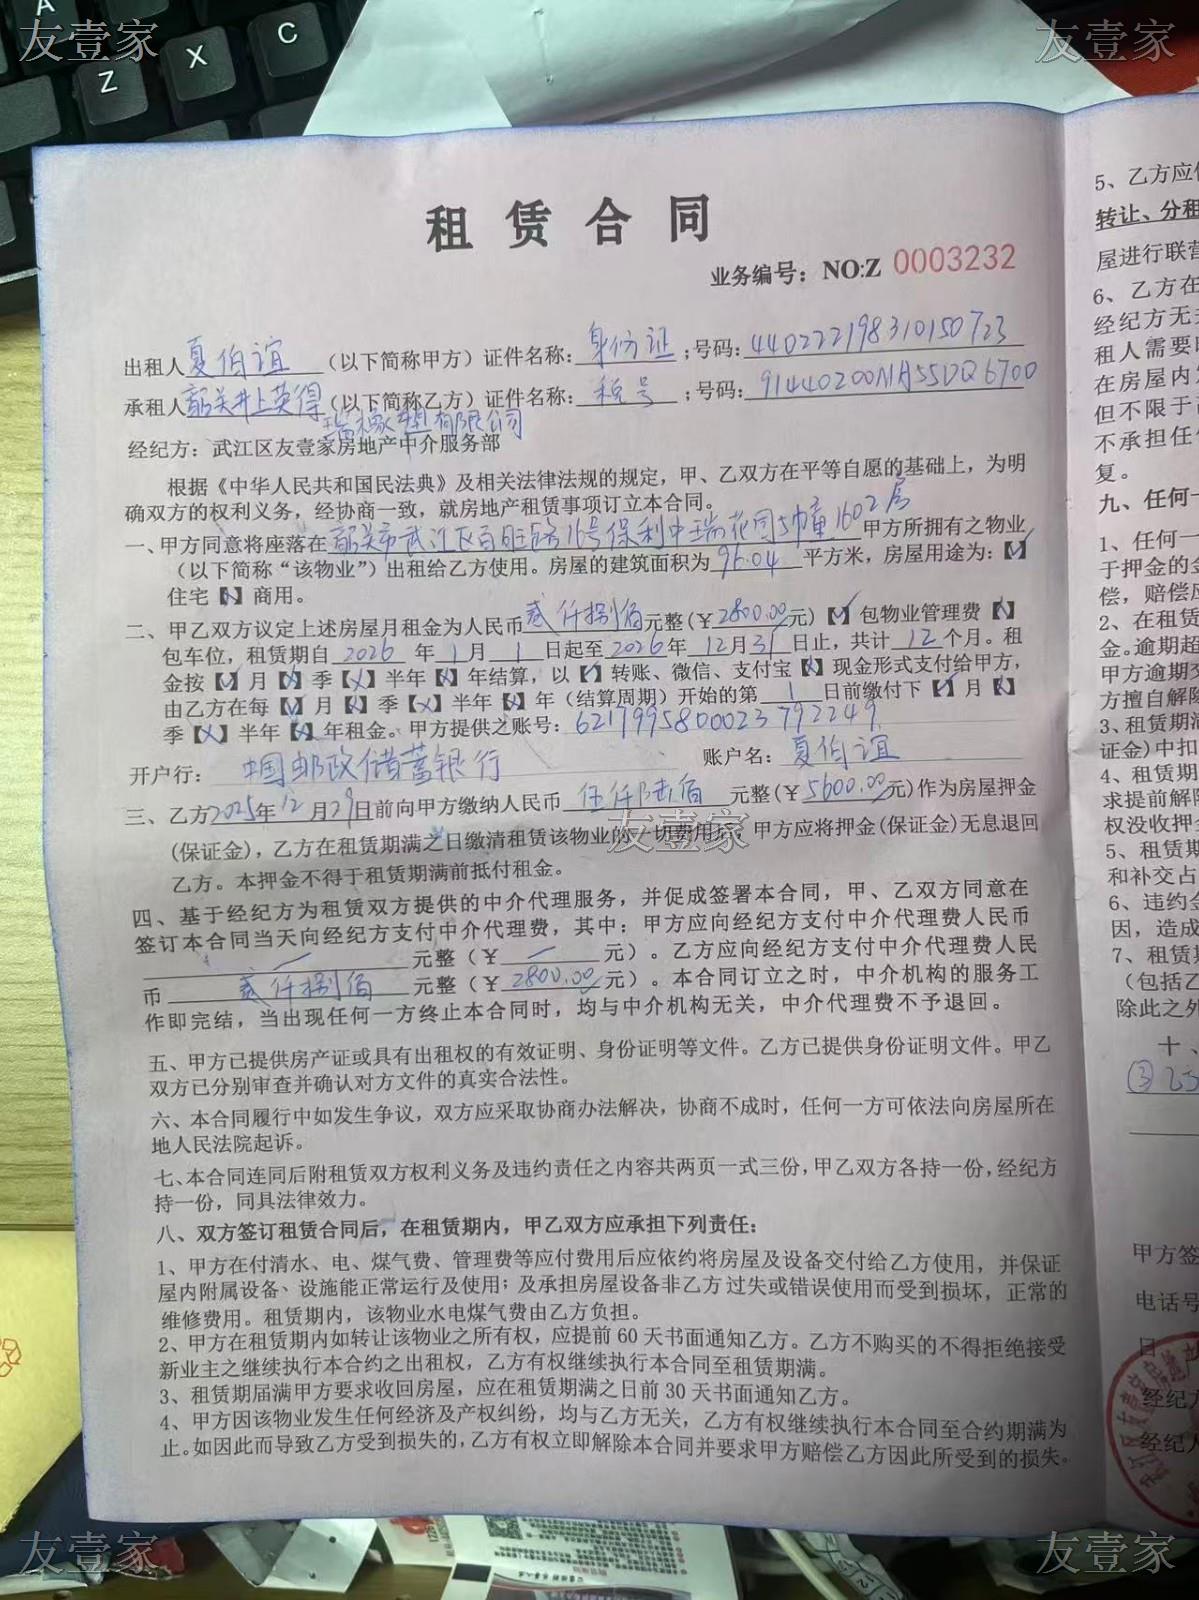 友壹家
友壹家
A
Z
X
C
租赁合同
业务编号：NO:Z 0003232
出租人夏伯谊（以下简称甲方）证件名称：身份证；号码：440222198310150723
承租人韶关井上英得（以下简称乙方）证件名称：税号；号码：91440200MA55DQ6700
瑞橡塑有限公司
经纪方：武江区友壹家房地产中介服务部
根据《中华人民共和国民法典》及相关法律法规的规定，甲、乙双方在平等自愿的基础上，为明
确双方的权利义务，经协商一致，就房地产租赁事项订立本合同。
一、甲方同意将座落在韶关市武江区百旺路16号保利中瑞花园5幢1602房甲方所拥有之物业
（以下简称“该物业”）出租给乙方使用。房屋的建筑面积为96.04平方米，房屋用途为：【✓】
住宅【×】商用。
二、甲乙双方议定上述房屋月租金为人民币贰仟捌佰元整(￥2800.00元)【✓】包物业管理费【×】
包车位，租赁期自2026年1月1日起至2026年12月31日止，共计12个月。租
金按【✓】月【×】季【×】半年【×】年结算，以【✓】转账、微信、支付宝【×】现金形式支付给甲方，
由乙方在每【✓】月【×】季【×】半年【×】年（结算周期）开始的第1日前缴付下【✓】月【×】
季【×】半年【×】年租金。甲方提供之账号：6217995800023792249
开户行：中国邮政储蓄银行 账户名：夏伯谊
三、乙方2025年12月29日前向甲方缴纳人民币伍仟陆佰元整(￥5600.00元)作为房屋押金
友壹家
(保证金)，乙方在租赁期满之日缴清租赁该物业的一切费用后，甲方应将押金(保证金)无息退回
乙方。本押金不得于租赁期满前抵付租金。
四、基于经纪方为租赁双方提供的中介代理服务，并促成签署本合同，甲、乙双方同意在
签订本合同当天向经纪方支付中介代理费，其中：甲方应向经纪方支付中介代理费人民币
／元整（￥／元）。乙方应向经纪方支付中介代理费人民
币贰仟捌佰元整（￥2800.00元）。本合同订立之时，中介机构的服务工
作即完结，当出现任何一方终止本合同时，均与中介机构无关，中介代理费不予退回。
五、甲方已提供房产证或具有出租权的有效证明、身份证明等文件。乙方已提供身份证明文件。甲乙
双方已分别审查并确认对方文件的真实合法性。
六、本合同履行中如发生争议，双方应采取协商办法解决，协商不成时，任何一方可依法向房屋所在
地人民法院起诉。
七、本合同连同后附租赁双方权利义务及违约责任之内容共两页一式三份，甲乙双方各持一份，经纪方
持一份，同具法律效力。
八、双方签订租赁合同后，在租赁期内，甲乙双方应承担下列责任：
1、甲方在付清水、电、煤气费、管理费等应付费用后应依约将房屋及设备交付给乙方使用，并保证
屋内附属设备、设施能正常运行及使用；及承担房屋设备非乙方过失或错误使用而受到损坏，正常的
维修费用。租赁期内，该物业水电煤气费由乙方负担。
2、甲方在租赁期内如转让该物业之所有权，应提前60天书面通知乙方。乙方不购买的不得拒绝接受
新业主之继续执行本合约之出租权，乙方有权继续执行本合同至租赁期满。
3、租赁期届满甲方要求收回房屋，应在租赁期满之日前30天书面通知乙方。
4、甲方因该物业发生任何经济及产权纠纷，均与乙方无关，乙方有权继续执行本合同至合约期满为
止。如因此而导致乙方受到损失的，乙方有权立即解除本合同并要求甲方赔偿乙方因此所受到的损失。
5、乙方应
转让、分租
屋进行联营
6、乙方在
经纪方无
租人需要
在房屋内
但不限于
不承担任
复。
九、任何一
1、任何一
于押金的金
偿，赔偿应
2、在租赁
金。逾期超
甲方逾期交
方擅自解除
3、租赁期
证金)中扣
4、租赁期
求提前解除
权没收押金
5、租赁期
和补交占
6、违约金
因，造成
7、租赁期
（包括乙
除此之外
十、
③乙方
甲方签
电话号
日
经纪方
经纪人
友壹家
友壹家